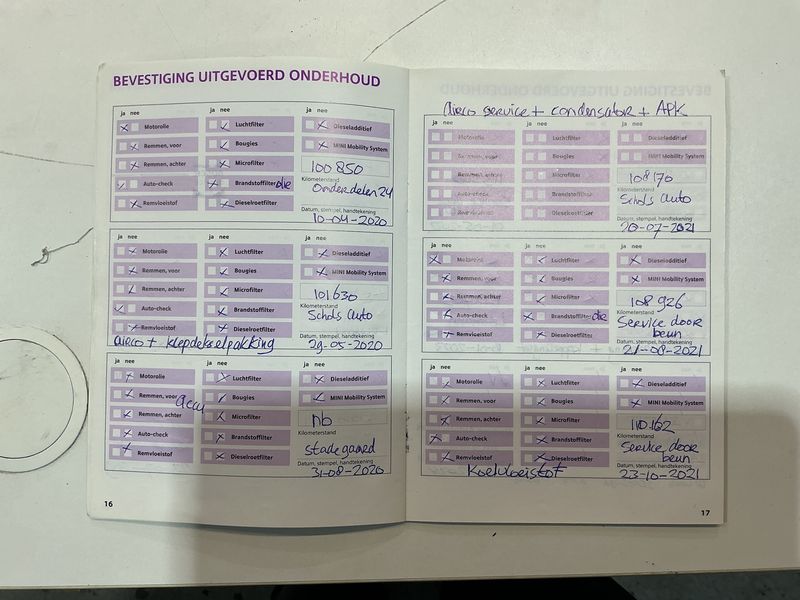 BEVESTIGING UITGEVOERD ONDERHOUD
ja nee
Motorolie
Remmen, voor
Remmen, achter
Auto-check
Remvloeistof
ja nee
Luchtfilter
Bougies
Microfilter
Brandstoffilter olie
Dieselroetfilter
ja nee
Dieseladditief
MINI Mobility System
100850
Kilometerstand
Onderdelen 24
Datum, stempel, handtekening
10-04-2020
ja nee
Motorolie
Remmen, voor
Remmen, achter
Auto-check
Remvloeistof
airco + klepdekselpakking
ja nee
Luchtfilter
Bougies
Microfilter
Brandstoffilter
Dieselroetfilter
ja nee
Dieseladditief
MINI Mobility System
101630
Kilometerstand
Schols Auto
Datum, stempel, handtekening
29-05-2020
ja nee
Motorolie
Remmen, voor accu
Remmen, achter
Auto-check
Remvloeistof
ja nee
Luchtfilter
Bougies
Microfilter
Brandstoffilter
Dieselroetfilter
ja nee
Dieseladditief
MINI Mobility System
nb
Kilometerstand
Stadegaard
Datum, stempel, handtekening
31-08-2020
16
Airco service + condensator + APK
ja nee
Motorolie
Remmen, voor
Remmen, achter
Auto-check
Remvloeistof
ja nee
Luchtfilter
Bougies
Microfilter
Brandstoffilter
Dieselroetfilter
ja nee
Dieseladditief
MINI Mobility System
108170
Kilometerstand
Schols Auto
Datum, stempel, handtekening
20-07-2021
ja nee
Motorolie
Remmen, voor
Remmen, achter
Auto-check
Remvloeistof
ja nee
Luchtfilter
Bougies
Microfilter
Brandstoffilter olie
Dieselroetfilter
ja nee
Dieseladditief
MINI Mobility System
108926
Kilometerstand
Service door
beun
Datum, stempel, handtekening
21-08-2021
ja nee
Motorolie
Remmen, voor
Remmen, achter
Auto-check
Remvloeistof
Koelvloeistof
ja nee
Luchtfilter
Bougies
Microfilter
Brandstoffilter
Dieselroetfilter
ja nee
Dieseladditief
MINI Mobility System
110162
Kilometerstand
Service door
beun
Datum, stempel, handtekening
23-10-2021
17